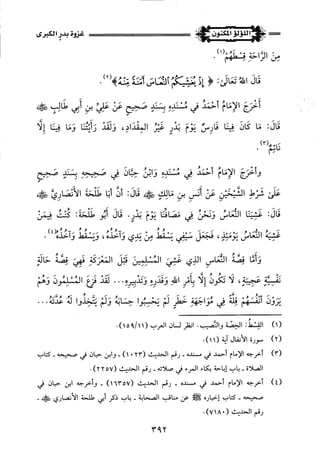 اللؤلؤ المكنون
غزوة بدر الكبرى
مِنَ الرَّاحَةِ قِسْطَهُمْ(١).
قَالَ اللهُ تَعَالَى: ﴿ إِذْ يُغَشِّيكُمُ النُّعَاسَ أَمَنَةً مِّنْهُ ﴾(٢).
أَخْرَجَ الإِمَامُ أَحْمَدُ فِي مُسْنَدِهِ بِسَنَدٍ صَحِيحٍ عَنْ عَلِيِّ بْنِ أَبِي طَالِبٍ ﷺ
قَالَ: مَا كَانَ فِينَا فَارِسٌ يَوْمَ بَدْرٍ غَيْرُ المِقْدَادِ، وَلَقَدْ رَأَيْتُنَا وَمَا فِينَا إِلَّا
نَائِمٌ(٣).
وَأَخْرَجَ الإِمَامُ أَحْمَدُ فِي مُسْنَدِهِ وَابْنُ حِبَّانَ فِي صَحِيحِهِ بِسَنَدٍ صَحِيحٍ
عَلَى شَرْطِ الشَّيْخَيْنِ عَنْ أَنَسِ بْنِ مَالِكٍ قَالَ: أَنَّ أَبَا طَلْحَةَ الأَنْصَارِيَّ
قَالَ: غَشِيَنَا النُّعَاسُ وَنَحْنُ فِي مَصَافِّنَا يَوْمَ بَدْرٍ. قَالَ أَبُو طَلْحَةَ: كُنْتُ فِيمَنْ
غَشِيَهُ النُّعَاسُ يَوْمَئِذٍ، فَجَعَلَ سَيْفِي يَسْقُطُ مِنْ يَدِي وَآخُذُهُ، وَيَسْقُطُ وَآخُذُهُ(٤).
وَأَمَّا قِصَّةُ النُّعَاسِ الَّذِي غَشِيَ المُسْلِمِينَ قَبْلَ المَعْرَكَةِ فَهِيَ قِصَّةُ حَالَةٍ
نَفْسِيَّةٍ عَجِيبَةٍ، لَا تَكُونُ إِلَّا بِأَمْرِ اللهِ وَقَدَرِهِ وَتَدْبِيرِهِ... لَقَدْ فَزِعَ المُسْلِمُونَ وَهُمْ
يَرَوْنَ أَنْفُسَهُمْ قِلَّةً فِي مُوَاجَهَةِ خَطَرٍ لَمْ يَحْسِبُوا حِسَابَهُ وَلَمْ يَتَّخِذُوا لَهُ عُدَّتَهُ...
(١) القِسْطُ: الحِصَّةُ والنصيب. انظر لسان العرب (١٥٩/١١).
(٢) سورة الأنفال آية (١١).
(٣) أخرجه الإمام أحمد في مسنده - رقم الحديث (١٠٢٣) - وابن حبان في صحيحه - كتاب
الصلاة - باب إباحة بكاء المرء في صلاته - رقم الحديث (٢٢٥٧).
(٤) أخرجه الإمام أحمد في مسنده - رقم الحديث (١٦٣٥٧) - وأخرجه ابن حبان في
صحيحه - كتاب إخباره ﷺ عن مناقب الصحابة - باب ذكر أبي طلحة الأنصاري -
رقم الحديث (٧١٨٠).
٣٩٢